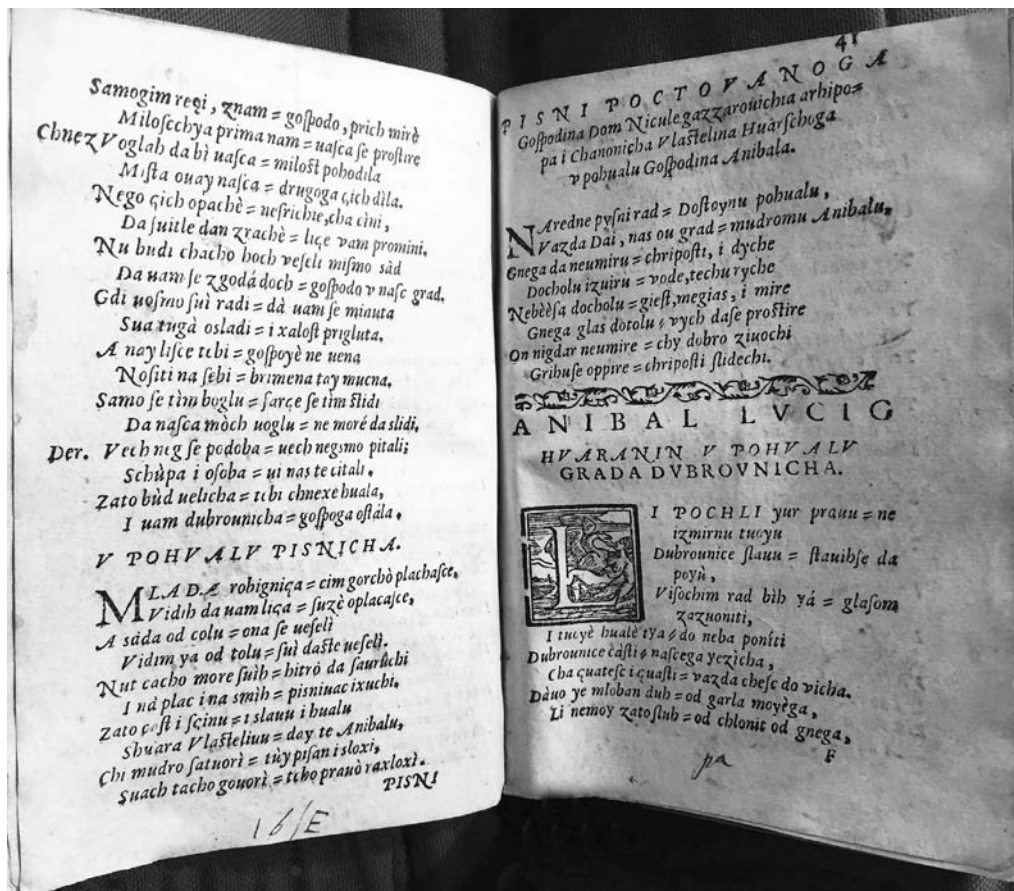 Samogim reçi, znam = goſpodo, prich mirè
Miloſcchya prima nam = uaſca ſe proſtire
Chnez Voglah da bì uaſca = miloſt pohodila
Miſta ouay naſca = drugoga çich dìla.
Nego çich opachè = neſrichie, cha cini,
Da ſuitle dan zrachè = liçe vam promini,
Nu budi chacho hoch veſeli miſmo sàd
Da uam ſe zgodá doch = goſpodo v naſc grad,
Gdi uoſmo ſui radi = dà uam ſe minuta
Sua tugà osladi = i xaloſt prigluta,
A nay liſce tebi = goſpoyè ne uena
Noſiti na ſebi = brimena tay mucna.
Samo ſe tìm boglu = ſarçe ſe tìm ſlidi
Da naſca mòch uoglu = ne moré da slidi,
Der. Vech neg ſe podoba = uech negsmo pitali;
Schùpa i oſoba = ui nas te citali.
Zato bùd uelicha = tebi chnexe huala,
I uam dubrounicha = goſpoga oſtála,
V POHVALV PISNICHA.
MLADA robigniça = cim gorchò plachaſce,
Vidih da uam liça = ſuzè oplacaſce,
A sàda od colu = ona ſe ueſelì
Vidim ya od tolu = ſuì daſte ueſelì.
Nut cacho more ſuìh = hitrò da ſaurſùchi
I nà plac i na smìh = pisniuac ixuchi.
Zato caſt i ſcinu = i slauu i hualu
Shuara Vlaſteliuu = day te Anibalu,
Chi mudro ſatuorì = tùy piſan i sloxi,
Suach tacho gouorì = tcho prauò raxloxì.
PISNI
16/E
41
PISNI POCTOVANOGA
Goſpodina Dom Nicule gazzarouichia arhipo=
pa i Chanonicha Vlaſtelina Huarſchoga
v pohualu Goſpodina Anibala.
NAredne pyſni rad = Doſtoynu pohualu,
Vazda Dai, nas ou grad = mudromu Anibalu,
Gnega da neumiru = chripoſti, i dyche
Docholu izuiru = vode, techu ryche
Nebèèſa docholu = gieſt, megias, i mire
Gnega glas dotolu = vych daſe proſtire
On nigdar neumire = chy dobro ziuochi
Gribuſe oppire = chripoſti slidechi.
ANIBAL LVCIG
HVARANIN V POHVALV
GRADA DVBROVNICHA.
I POCHLI yur prauu = ne
izmirnu tuoyu
Dubrounice ſlauu = ſtauihſe da
poyù,
Viſochim rad bìh yá = glaſom
zazuoniti,
I tuoyè hualè tya = do neba poníti
Dubrounice càſti = naſcega yezìcha,
Cha çuateſc i quaſti = vazda cheſc do vicha.
Dàuo ye mloban duh = od garla moyèga,
Li nemoy zato ſluh = od chlonit od gnega,
F
pa